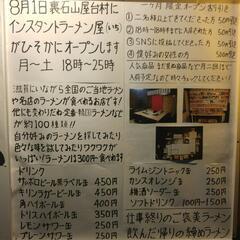 8月1日裏石山屋台村に
インスタントラーメン屋(いち)
がひそかにオープンします
月～土 18時～25時
滋賀にいながら全国のご当地ラーメン
や名店のラーメンが食べれるお店です!
他にも変わりだね・定番・カップ麺などな
ど約100種類!
自分好みのラーメンを探してみたり
色々な味を試してみたりワクワクが
いっぱい!ラーメン1300円～食べれます
ドリンク
サッポロビール黒ラベル缶 450円
キリンラガービール缶 450円
角ハイボール缶 400円
トリスハイボール缶 350円
レモンサワー缶 250円
プレーンサワー缶 250円
一ヶ月限定オープン割引き
50円引
50円引
50円引
50円引
ライムジントニック缶 250円
カシスオレンジ缶 250円
梅酒ソーダー缶 250円
ソフトドリンク 100円～150円
仕事終りのご褒美ラーメン
飲んだ帰りの締めラーメン